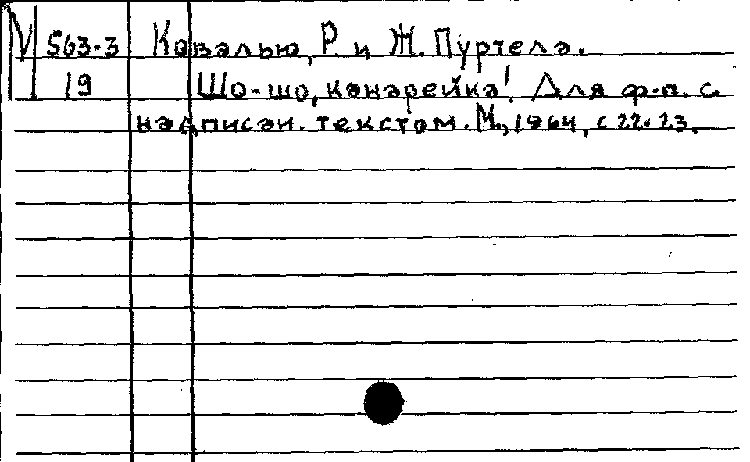 М 563-3 Кавалью, Р. и Ж. Пуртела.
19 Шо-шо, канарейка! Для ф-п. с
надписан. текстом. М., 1964, с 22-23.